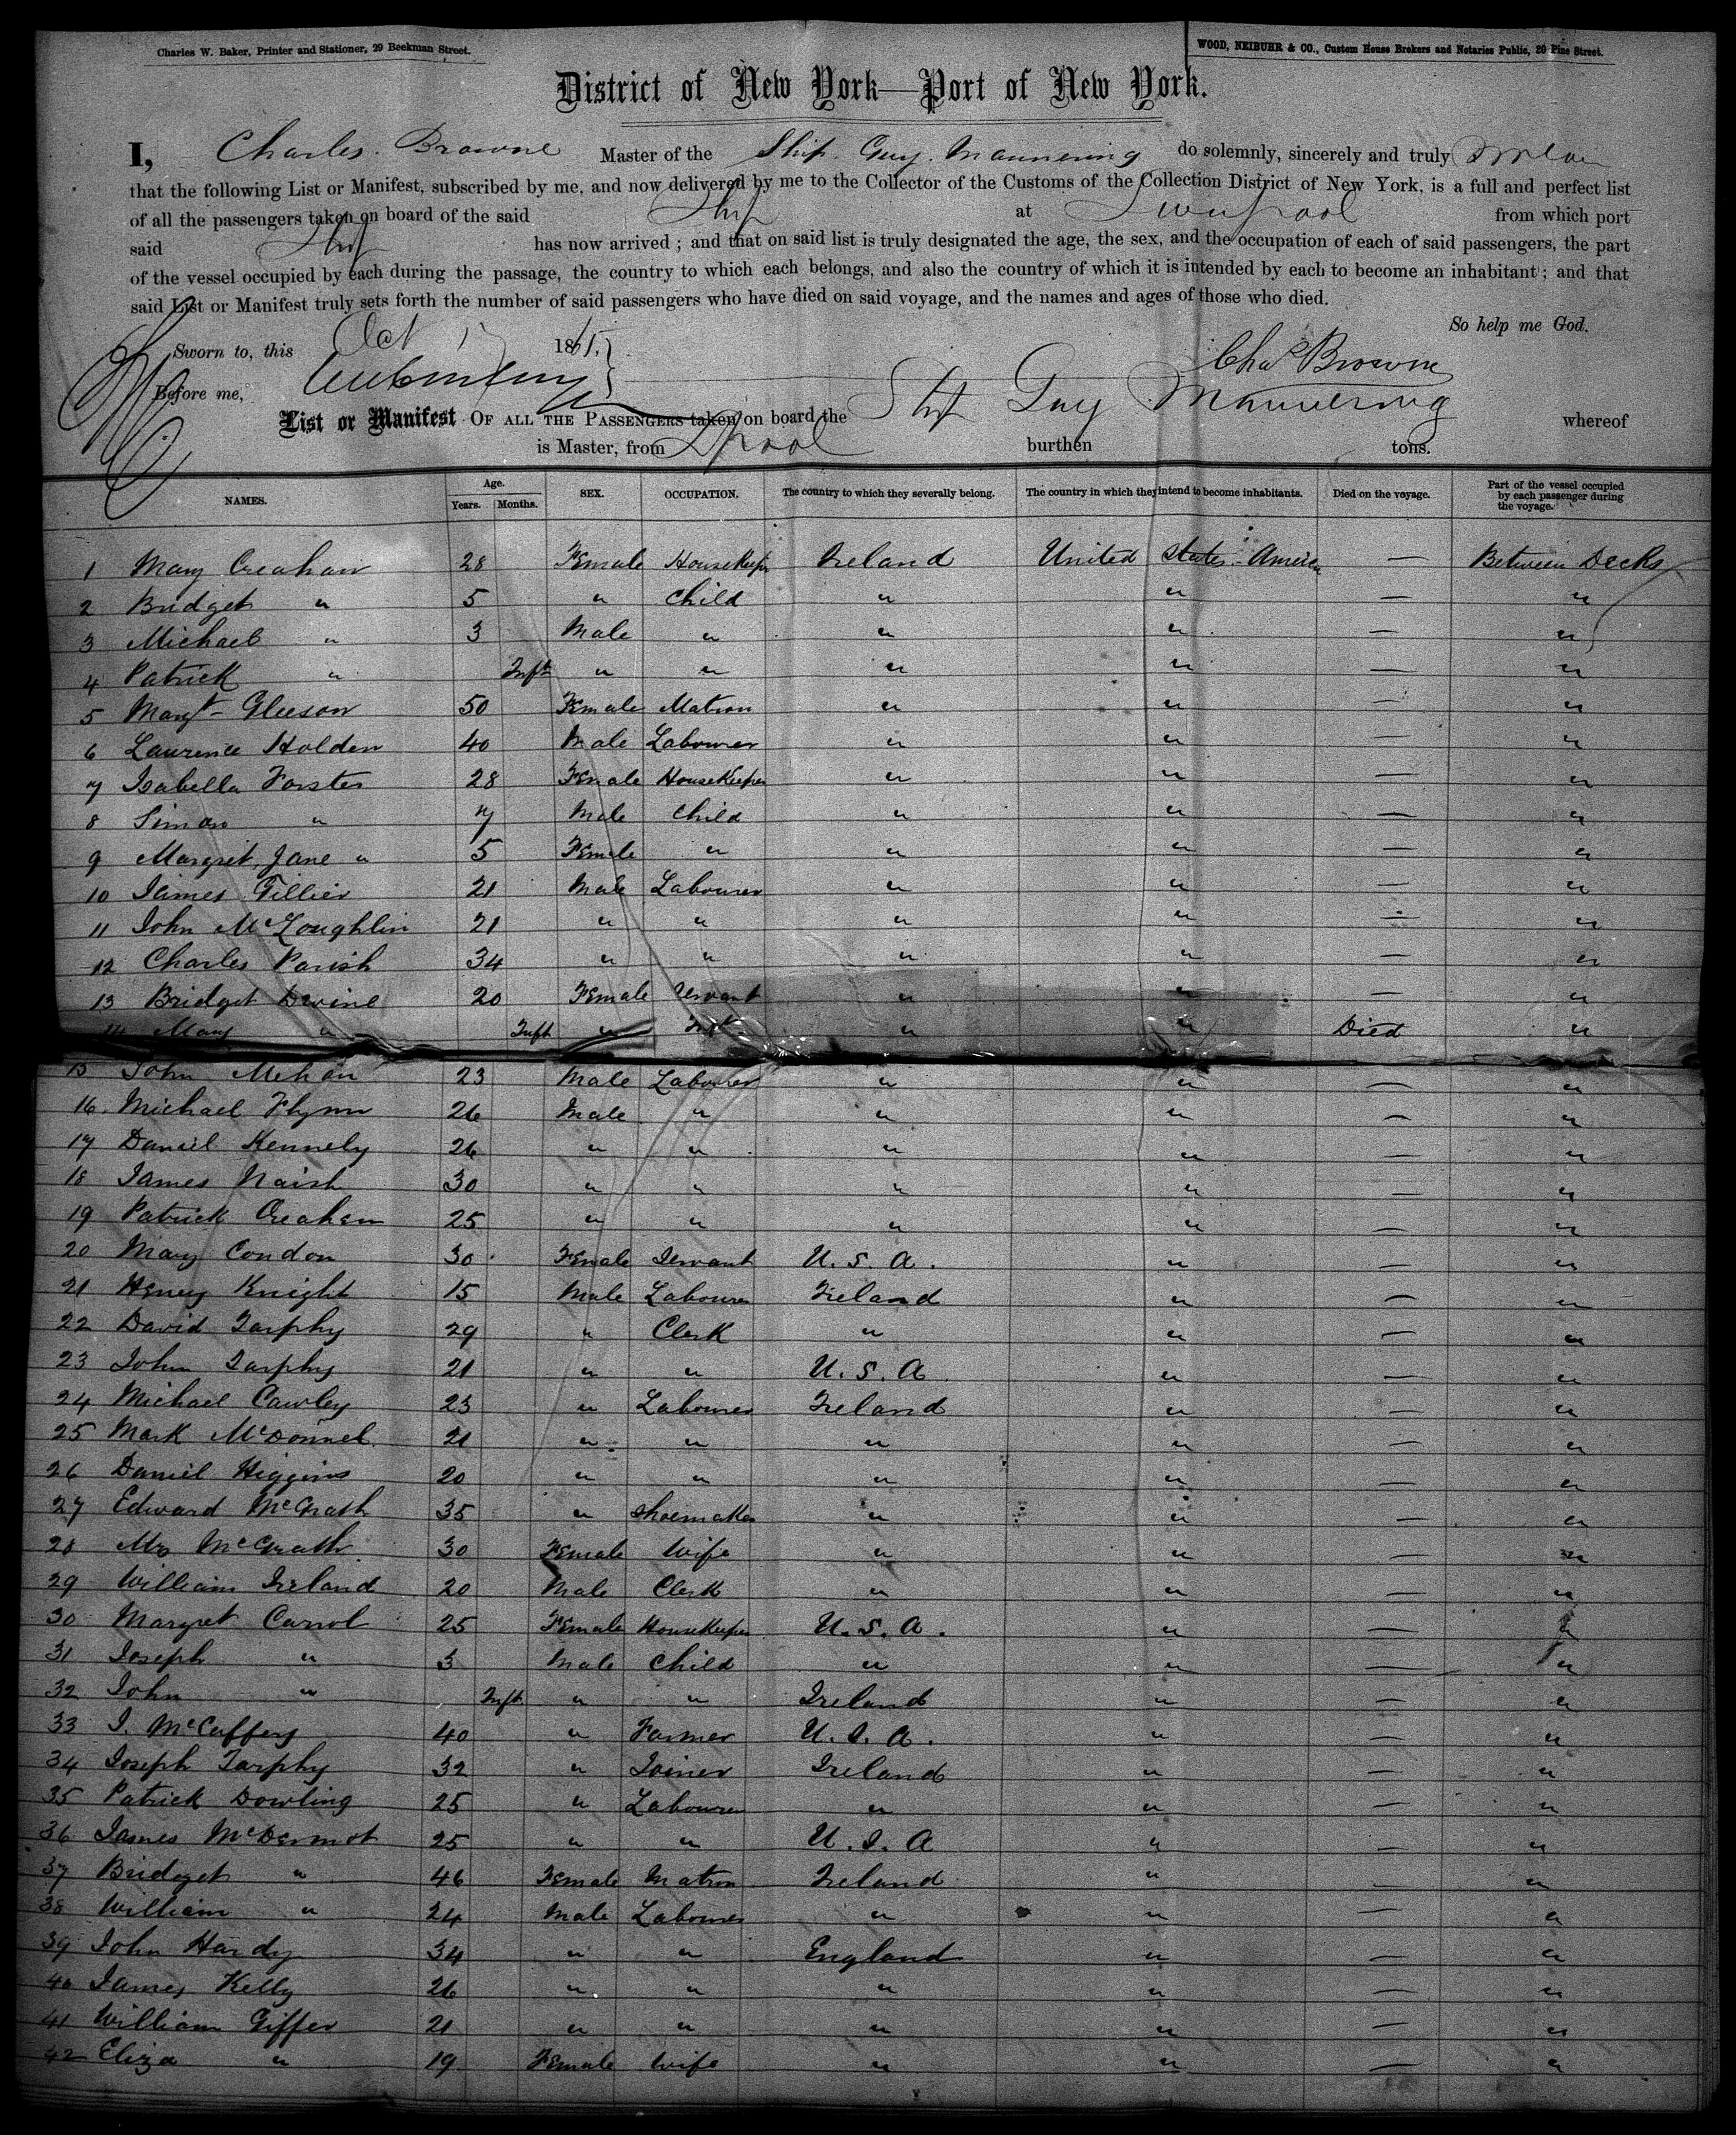 Charles W. Baker, Printer and Stationer, 29 Beekman Street.
WOOD, NEIBUHR & CO., Custom House Brokers and Notaries Public, 26 Pine Street.
District of New York—Port of New York.
I, Charles. Browne Master of the Ship. Guy. Mannering do solemnly, sincerely and truly
that the following List or Manifest, subscribed by me, and now delivered by me to the Collector of the Customs of the Collection District of New York, is a full and perfect list
of all the passengers taken on board of the said Ship at Liverpool from which port
said Ship has now arrived ; and that on said list is truly designated the age, the sex, and the occupation of each of said passengers, the part
of the vessel occupied by each during the passage, the country to which each belongs, and also the country of which it is intended by each to become an inhabitant ; and that
said List or Manifest truly sets forth the number of said passengers who have died on said voyage, and the names and ages of those who died.
So help me God.
Sworn to, this Oct 1865. Chas Browne
Before me,
List or Manifest OF ALL THE PASSENGERS taken on board the Ship Guy Mannering whereof
is Master, from Lpool burthen tons.
NAMES. Age. Years. Months. SEX. OCCUPATION. The country to which they severally belong. The country in which they intend to become inhabitants. Died on the voyage. Part of the vessel occupied by each passenger during the voyage.
1 Mary Creahan 28 Female HouseKeeper Ireland United States. America — Between Decks
2 Bridget " 5 " Child " " — "
3 Michael " 3 Male " " " — "
4 Patrick " Inft " " " " — "
5 Margt Gleeson 50 Female Matron " " — "
6 Laurence Holden 40 Male Labourer " " — "
7 Isabella Forster 28 Female HouseKeeper " " — "
8 Simon " 7 Male Child " " — "
9 Margret Jane " 5 Female " " " — "
10 James Gillier 21 Male Labourer " " — "
11 John McLoughlin 21 " " " " — "
12 Charles Parish 34 " " " " — "
13 Bridget Devine 20 Female Servant " " — "
14 Mary " Inft " Inft " " Died "
15 John Mehan 23 Male Labourer " " — "
16. Michael Flynn 26 Male " " " — "
17 Daniel Kennely 26 " " " " — "
18 James Naish 30 " " " " — "
19 Patrick Creahan 25 " " " " — "
20 Mary Condon 30 Female Servant U. S. A. " — "
21 Henry Knight 15 Male Labourer Ireland " — "
22 David Tarphy 29 " Clerk " " — "
23 John Tarphy 21 " " U. S. A " — "
24 Michael Cawley 23 " Labourer Ireland " — "
25 Mark McDonnel 21 " " " " — "
26 Daniel Higgins 20 " " " " — "
27 Edward McGrath 35 " Shoemaker " " — "
28 Mrs McGrath 30 Female Wife " " — "
29 William Ireland 20 Male Clerk " " — "
30 Margret Carrol 25 Female HouseKeeper U. S. A. " — "
31 Joseph " 3 Male Child " " — "
32 John " Inft " " Ireland " — "
33 J. McCaffery 40 " Farmer U. S. A. " — "
34 Joseph Tarphy 32 " Joiner Ireland " — "
35 Patrick Dowling 25 " Labourer " " — "
36 James McDermot 25 " " U. S. A " — "
37 Bridget " 46 Female Matron Ireland " — "
38 William " 24 Male Labourer " " — "
39 John Hardy 34 " " England " — "
40 James Kelly 26 " " " " — "
41 William Giffer 21 " " " " — "
42 Eliza " 19 Female Wife " " — "